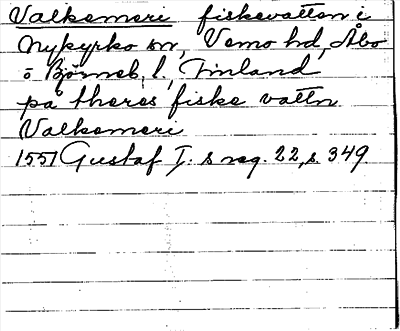 Valkemeri fiskevatten i
Nykyrko sn, Vemo hd, Åbo
o Björneb. l., Finland
på theres fiske vattn
Valkemeri
1551 Gustaf I. s reg. 22, s. 349